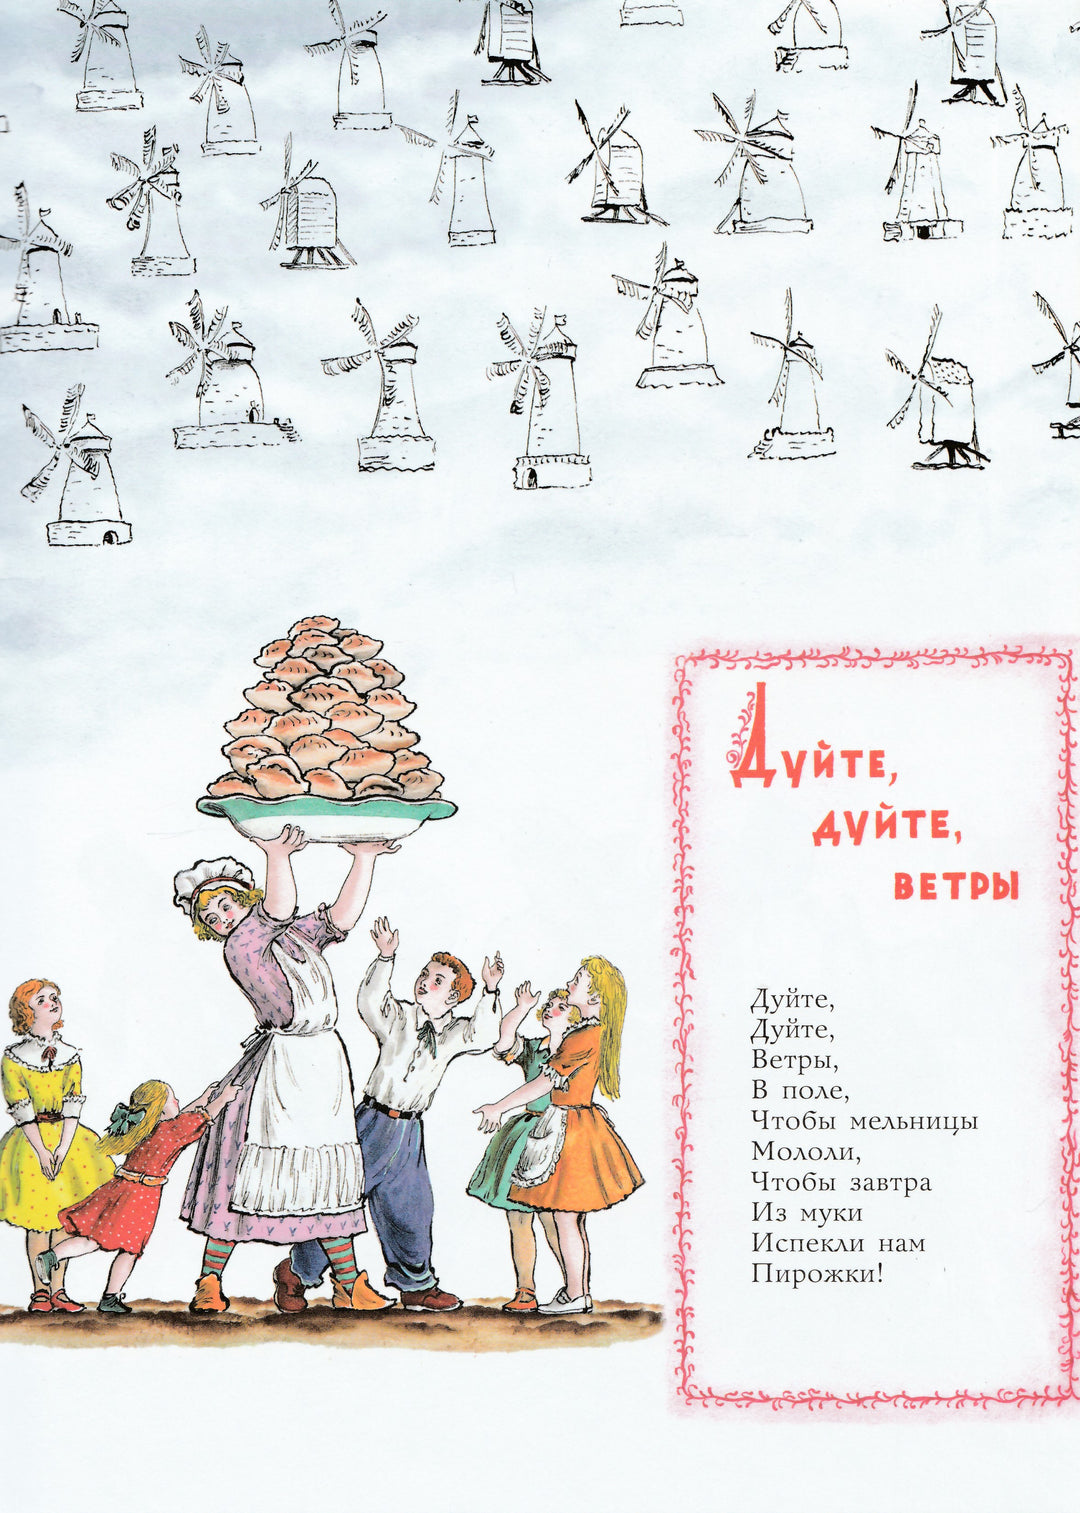 Дуйте,
дуйте,
ветры
Дуйте,
Дуйте,
Ветры,
В поле,
Чтобы мельницы
Мололи,
Чтобы завтра
Из муки
Испекли нам
Пирожки!